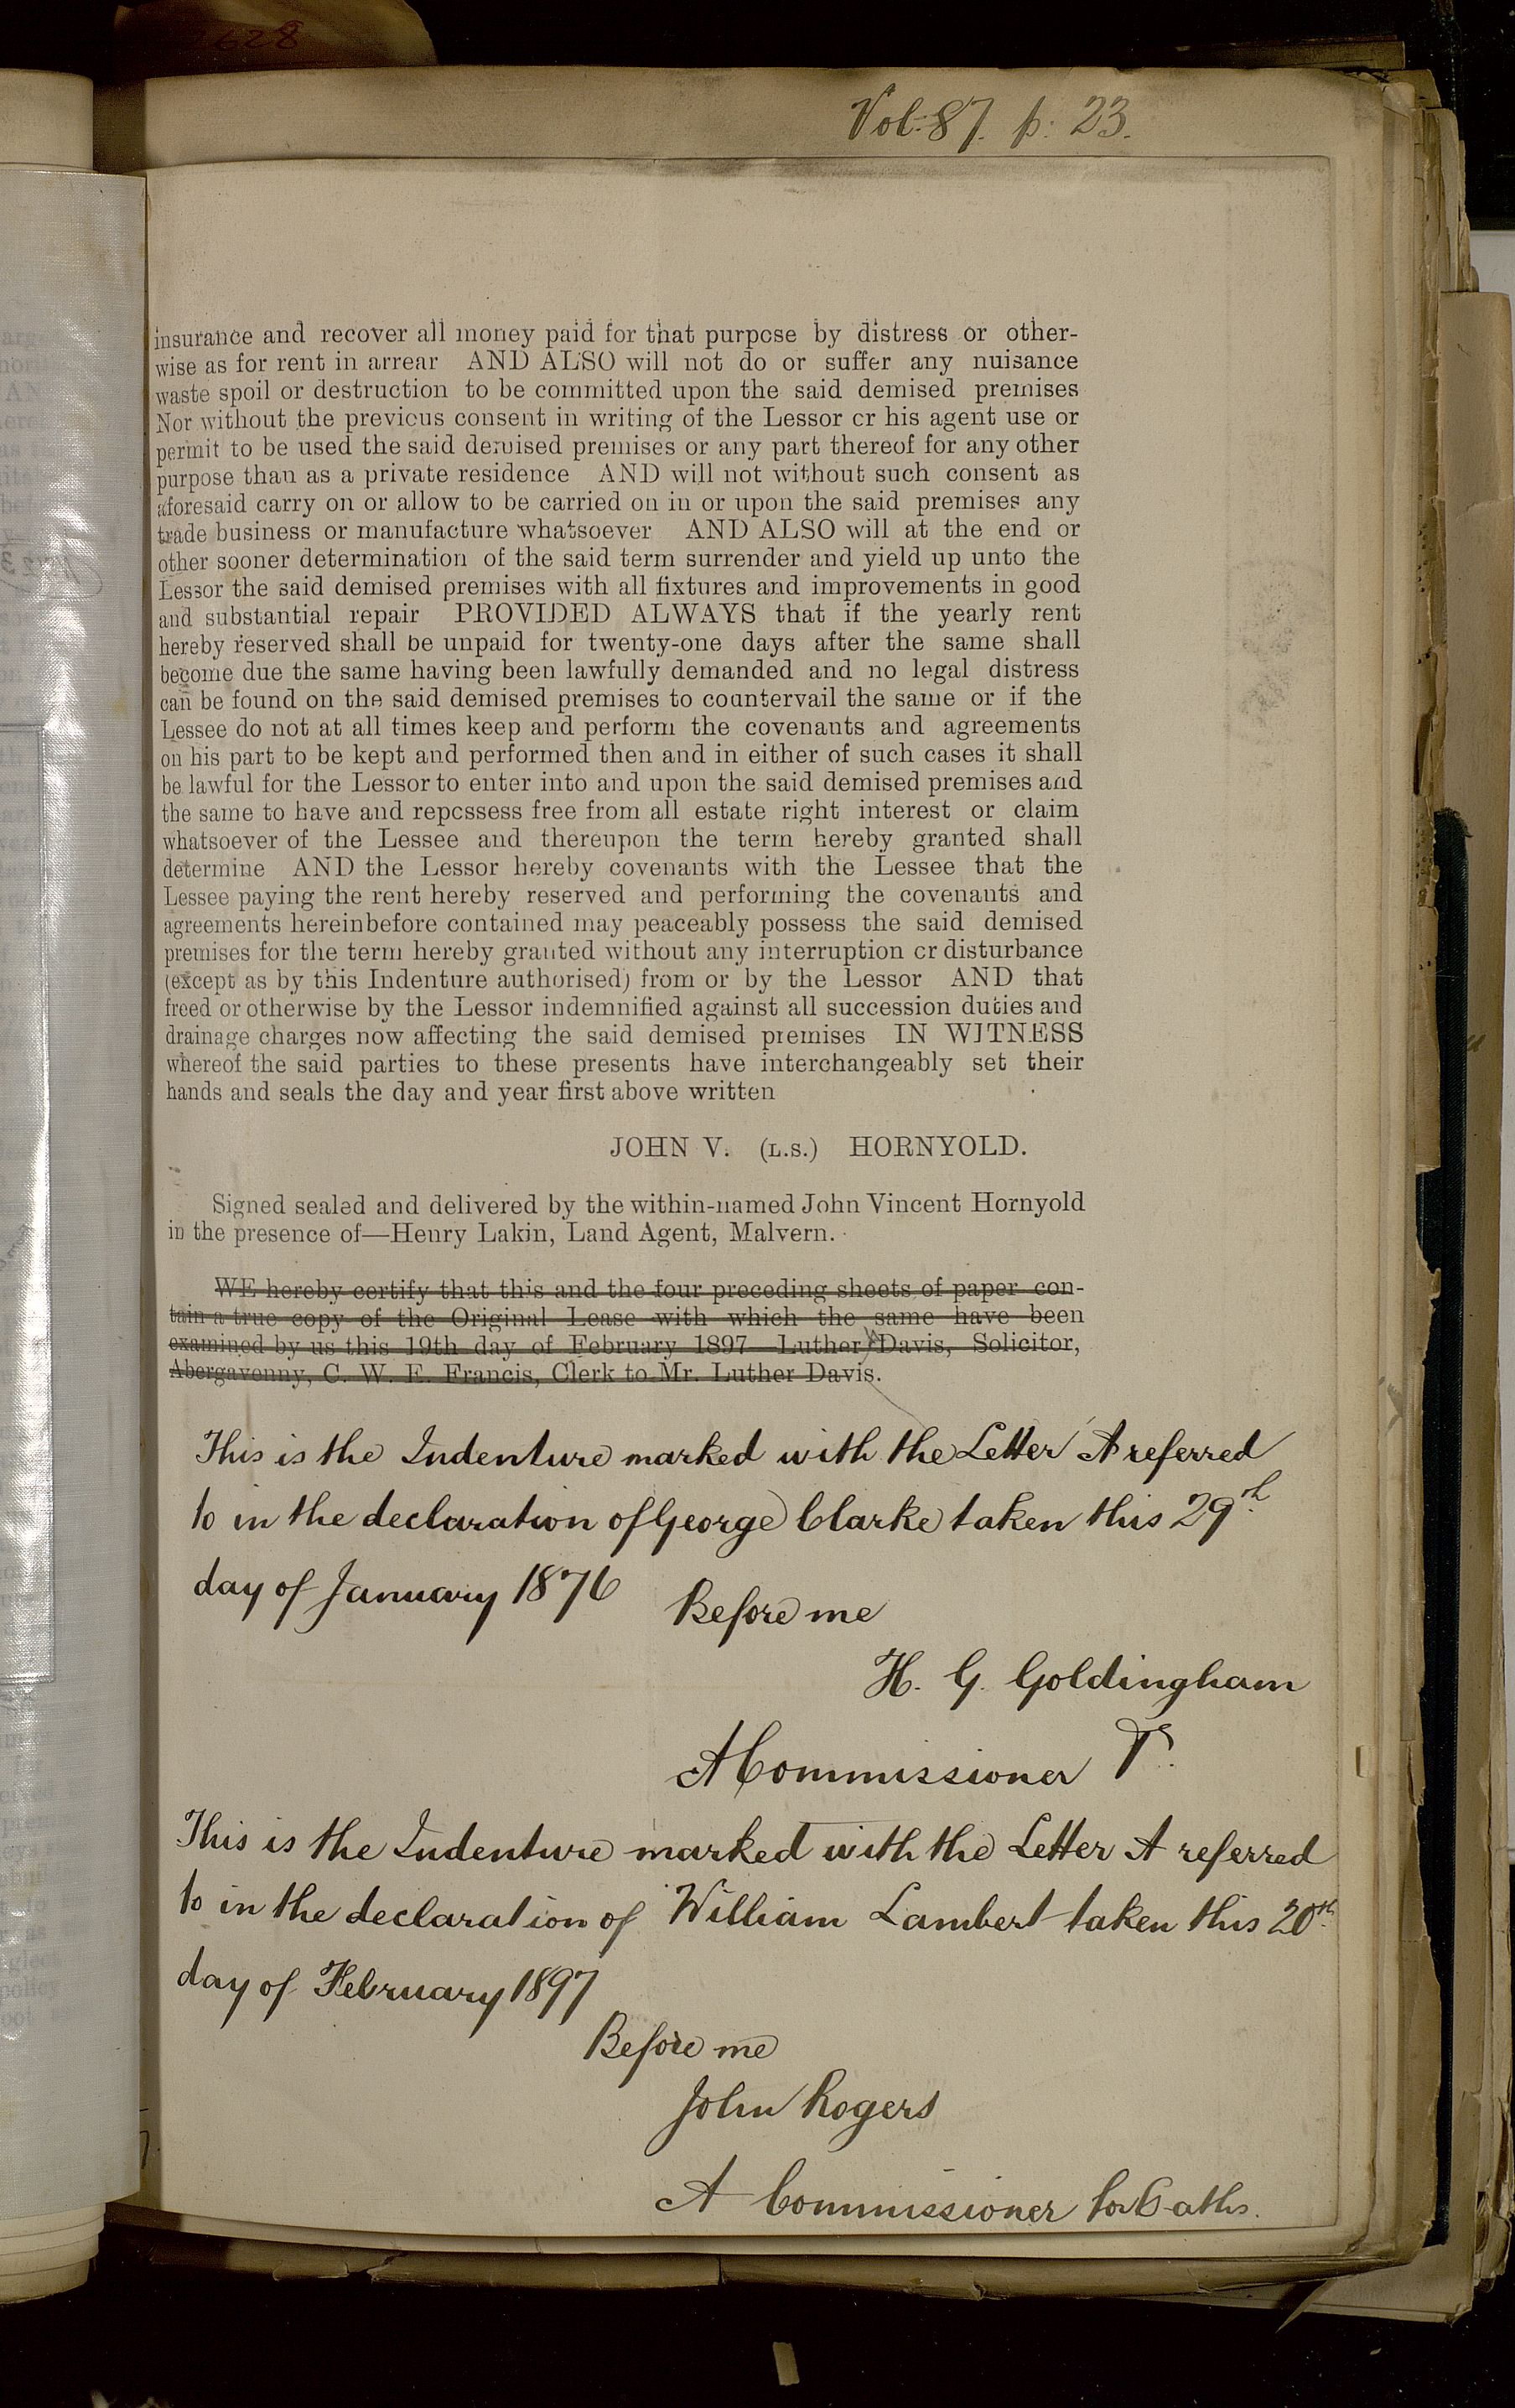 628
Vol: 87. p: 23.
insurance and recover all money paid for that purpose by distress or other-
wise as for rent in arrear AND ALSO will not do or suffer any nuisance
waste spoil or destruction to be committed upon the said demised premises
Nor without the previous consent in writing of the Lessor or his agent use or
permit to be used the said demised premises or any part thereof for any other
purpose than as a private residence AND will not without such consent as
aforesaid carry on or allow to be carried on in or upon the said premises any
trade business or manufacture whatsoever AND ALSO will at the end or
other sooner determination of the said term surrender and yield up unto the
Lessor the said demised premises with all fixtures and improvements in good
and substantial repair PROVIDED ALWAYS that if the yearly rent
hereby reserved shall be unpaid for twenty-one days after the same shall
become due the same having been lawfully demanded and no legal distress
can be found on the said demised premises to countervail the same or if the
Lessee do not at all times keep and perform the covenants and agreements
on his part to be kept and performed then and in either of such cases it shall
be lawful for the Lessor to enter into and upon the said demised premises and
the same to have and repossess free from all estate right interest or claim
whatsoever of the Lessee and thereupon the term hereby granted shall
determine AND the Lessor hereby covenants with the Lessee that the
Lessee paying the rent hereby reserved and performing the covenants and
agreements hereinbefore contained may peaceably possess the said demised
premises for the term hereby granted without any interruption or disturbance
(except as by this Indenture authorised) from or by the Lessor AND that
freed or otherwise by the Lessor indemnified against all succession duties and
drainage charges now affecting the said demised premises IN WITNESS
whereof the said parties to these presents have interchangeably set their
hands and seals the day and year first above written
JOHN V. (L.S.) HORNYOLD.
Signed sealed and delivered by the within-named John Vincent Hornyold
in the presence of—Henry Lakin, Land Agent, Malvern.
WE hereby certify that this and the four preceding sheets of paper con-
tain a true copy of the Original Lease with which the same have been
examined by us this 19th day of February 1897 Luther Davis, Solicitor,
Abergavenny, C. W. E. Francis, Clerk to Mr. Luther Davis.
This is the Indenture marked with the Letter A referred
to in the declaration of George Clarke taken this 29th
day of January 1876 Before me
H. G. Goldingham
A Commissioner
This is the Indenture marked with the Letter A referred
to in the declaration of William Lambert taken this 20th
day of February 1897
Before me
John Rogers
A Commissioner for Oaths.